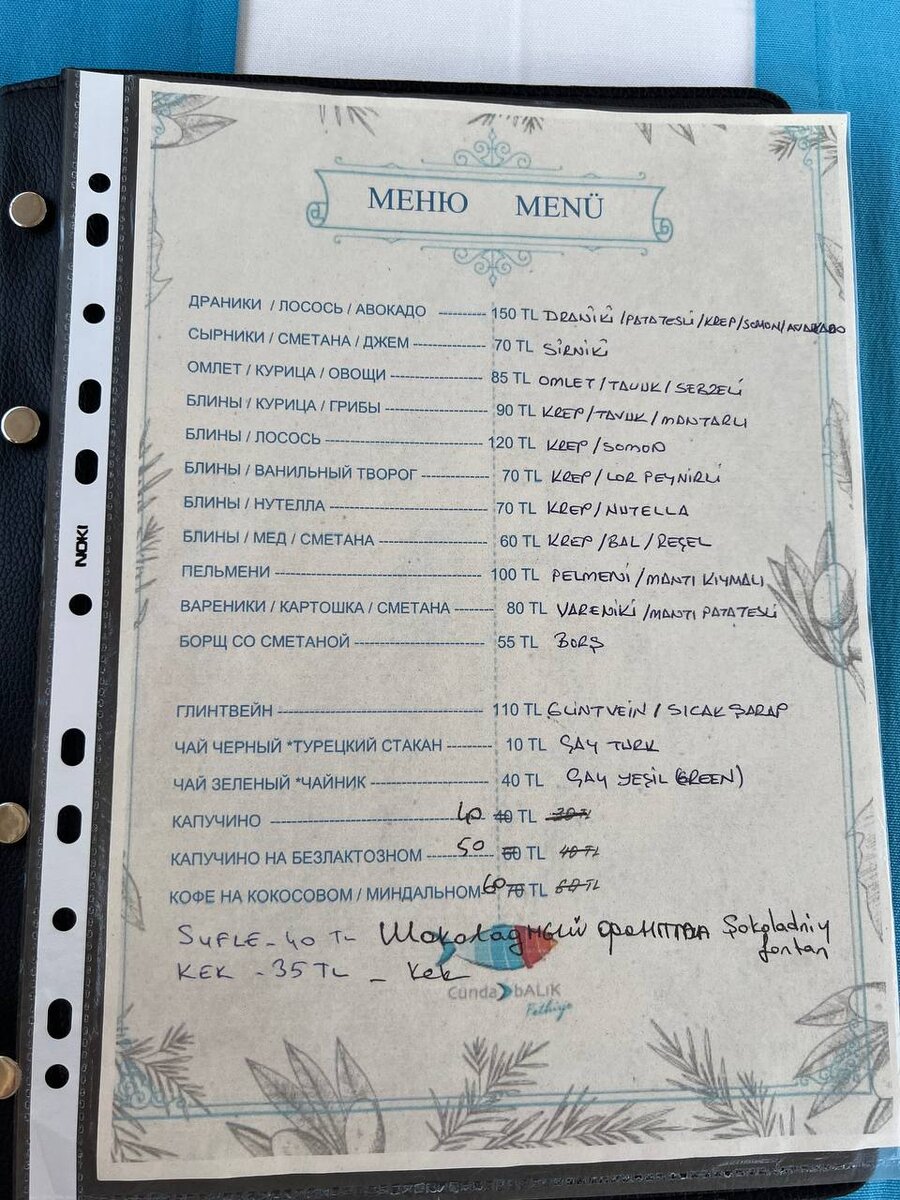 МЕНЮ MENÜ
ДРАНИКИ / ЛОСОСЬ / АВОКАДО ---------- 150 TL DRANİKİ/PATATESLİ/KREP/SOMON/AVAKADO
СЫРНИКИ / СМЕТАНА / ДЖЕМ ---------------- 70 TL SİRNİKİ
ОМЛЕТ / КУРИЦА / ОВОЩИ -------------------- 85 TL OMLET/TAVUK/SEBZELİ
БЛИНЫ / КУРИЦА / ГРИБЫ --------------------- 90 TL KREP/TAVUK/MANTARLI
БЛИНЫ / ЛОСОСЬ --------------------------------- 120 TL KREP/SOMON
БЛИНЫ / ВАНИЛЬНЫЙ ТВОРОГ ------------- 70 TL KREP/LOR PEYNİRLİ
БЛИНЫ / НУТЕЛЛА --------------------------------- 70 TL KREP/NUTELLA
БЛИНЫ / МЕД / СМЕТАНА --------------------- 60 TL KREP/BAL/REÇEL
ПЕЛЬМЕНИ ------------------------------------------ 100 TL PELMENİ/MANTI KIYMALI
ВАРЕНИКИ / КАРТОШКА / СМЕТАНА -------- 80 TL VARENİKİ/MANTI PATATESLİ
БОРЩ СО СМЕТАНОЙ -------------------------- 55 TL BORŞ
ГЛИНТВЕЙН ------------------------------------------ 110 TL GLİNTVEİN / SICAK ŞARAP
ЧАЙ ЧЕРНЫЙ *ТУРЕЦКИЙ СТАКАН --------- 10 TL ÇAY TURK
ЧАЙ ЗЕЛЕНЫЙ *ЧАЙНИК ----------------------- 40 TL ÇAY YEŞİL (GREEN)
КАПУЧИНО ------------------------------------------- 40 40 TL 30 TL
КАПУЧИНО НА БЕЗЛАКТОЗНОМ ---------- 50 60 TL 40 TL
КОФЕ НА КОКОСОВОМ / МИНДАЛЬНОМ 60 70 TL 60 TL
SUFLE - 40 TL Шоколадный фонтан Şokoladniy
fontan
KEK - 35 TL - Kek
Cunda bALIK
Fethiye
NOKI